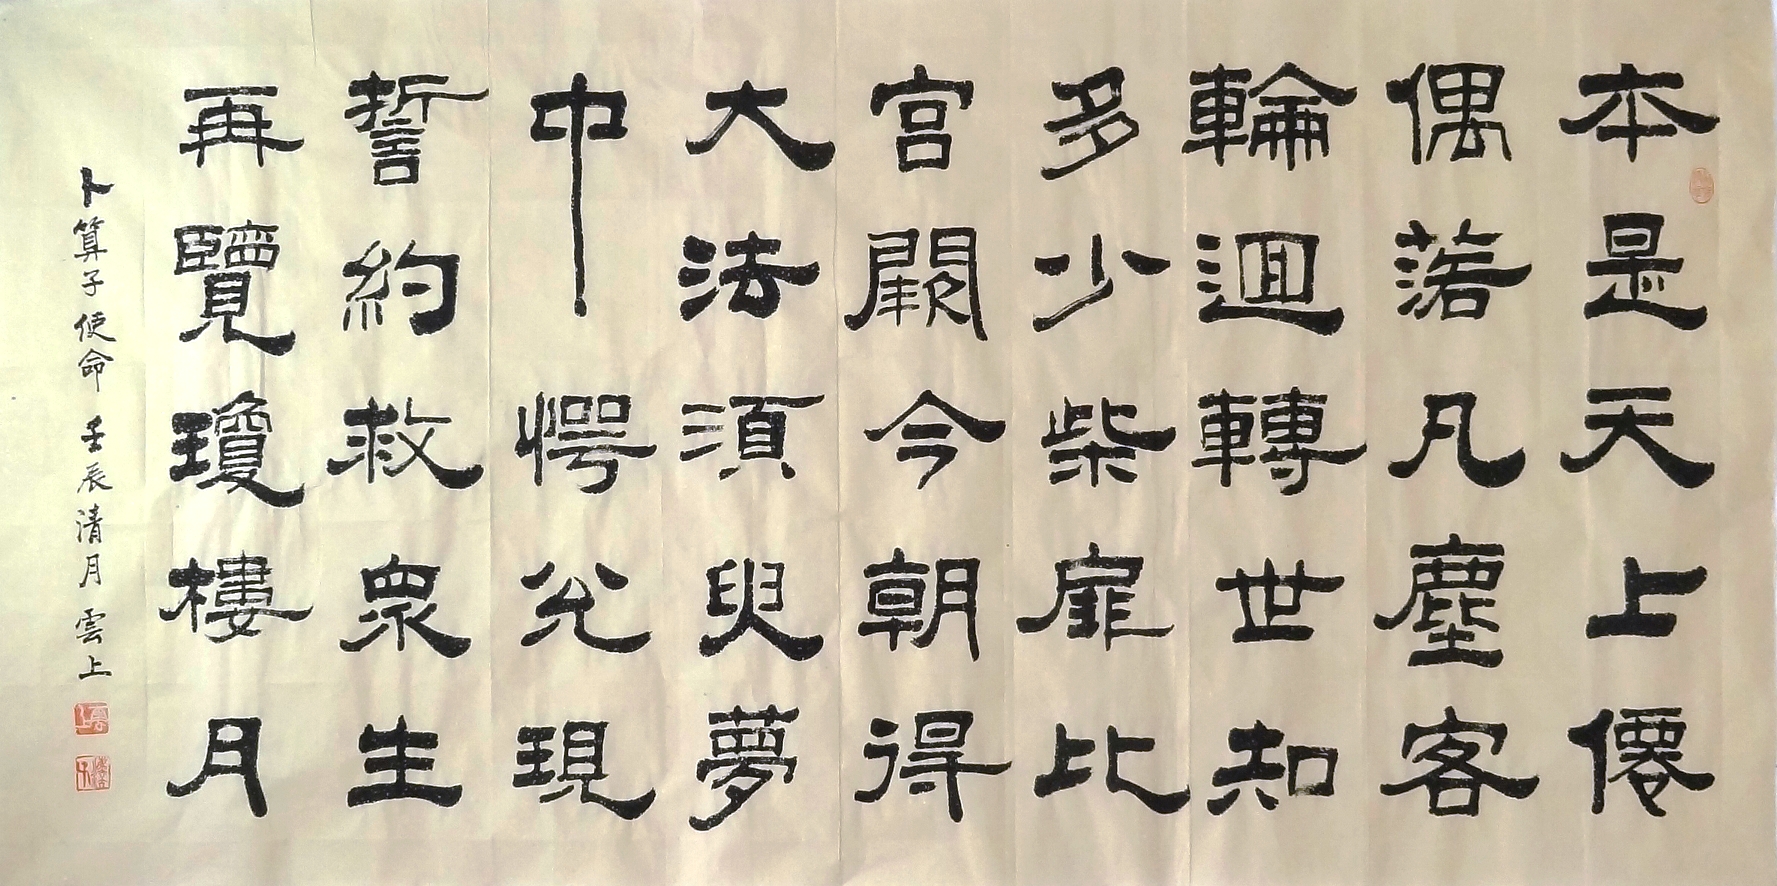 本是天上僊
偶落凡塵客
輪迴轉世知
多少柴扉比
宮闕今朝得
大法須臾夢
中愕兊現
誓約救眾生
再覽瓊樓月
卜算子 使命 壬辰清月 雲上
雲上